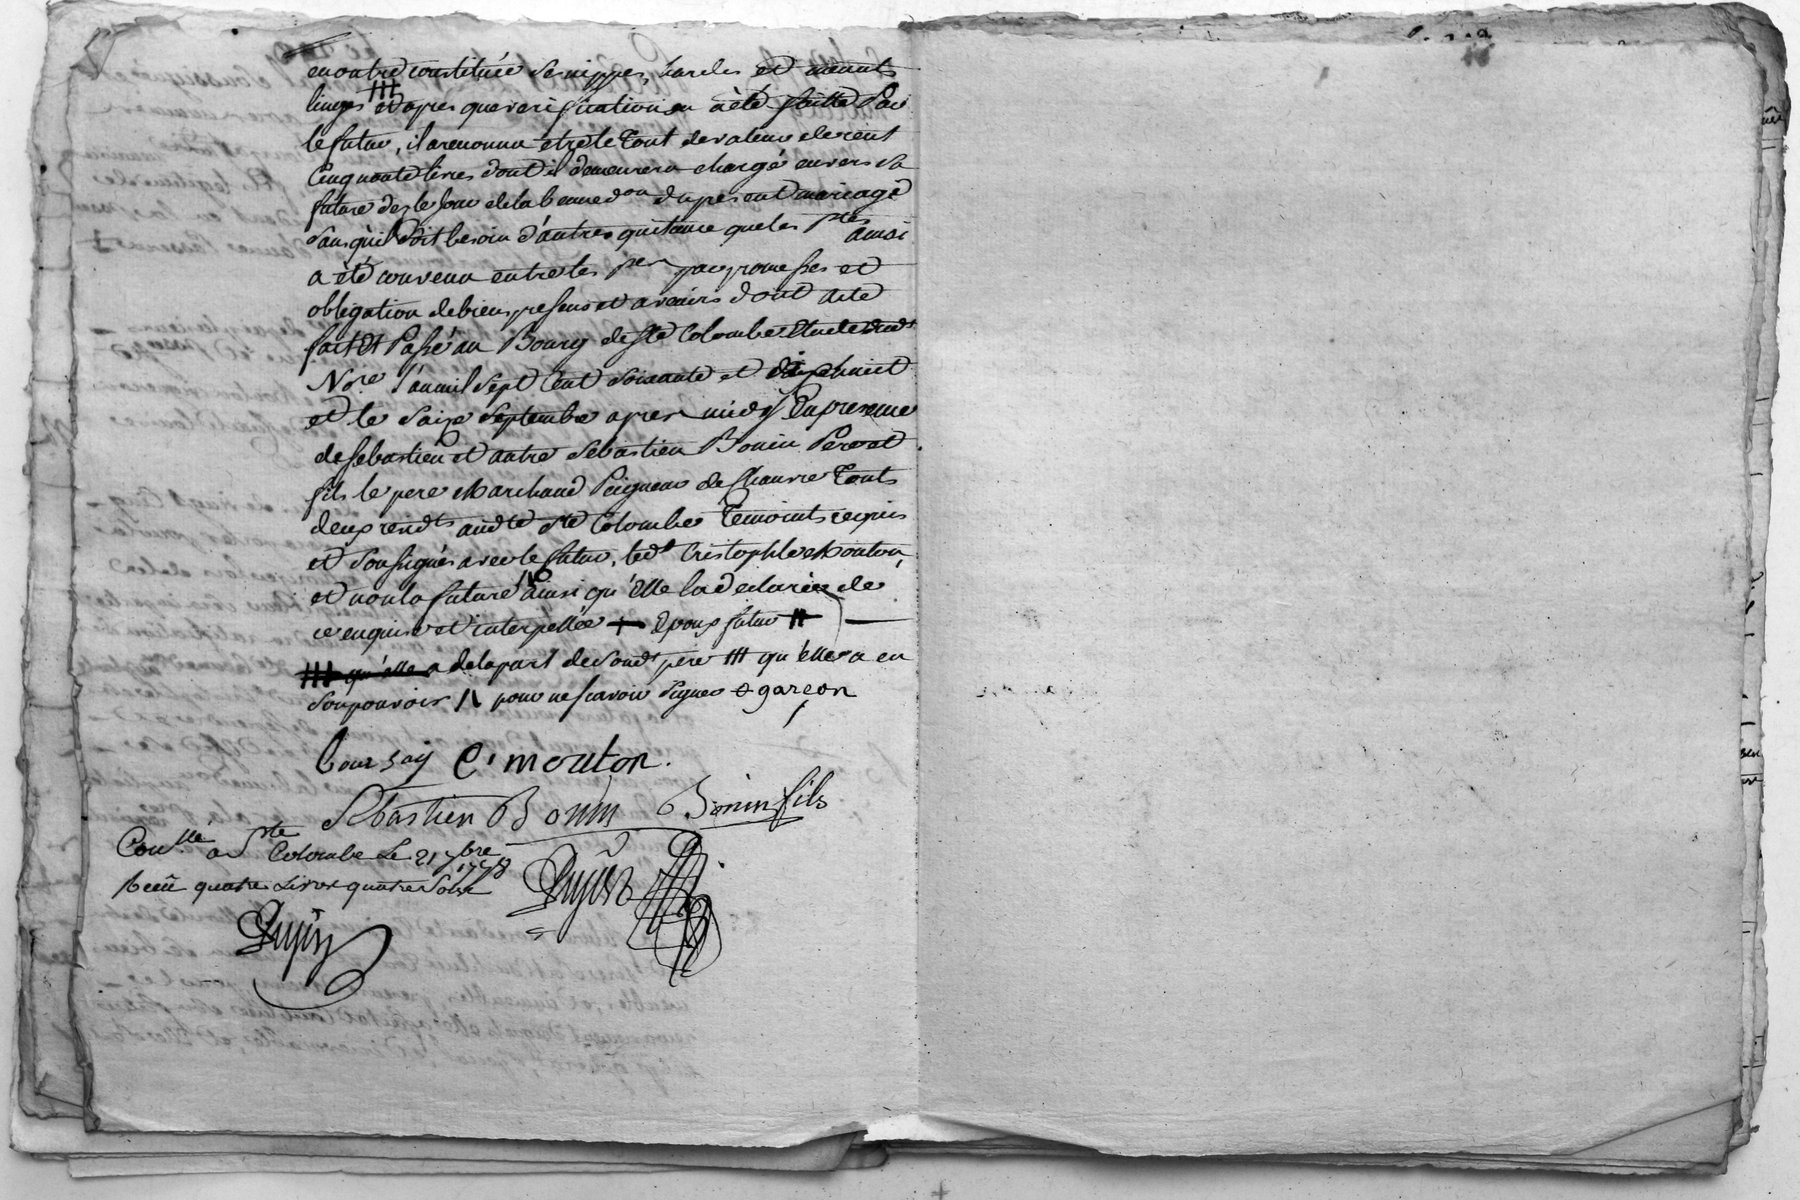 en outre constituée ses nippes, hardes et menuts
linges ttt et apres que verification en a été faitte Par
le futur, il a reconnu etre le tout de valeur de cent
Cinquante livres dont il demeurera chargé envers sa
future des le Jour de la benned.on du present mariagé
sans qu'il soit besoin d'autres quitance que les Pntes ainsi
a été convenu entre les Pes par promesses et
obligation de biens presens et avenirs dont acte
fait et Passé au Bourg de Ste Colombe Etude dudt
Nore l'an mil sept cent soixante et dixhuict
et le saize septembre apres midy En presence
de sebastien et autre sebastien Bonin Pere et
fils le pere Marchand Peigneur de Chanvre Touts
deux rendts audt Ste Colombe Temoints requis
et soussignés avec le futur, ledt Cristophle Mouton,
et non la future ainsi qu'Elle la declarée de
ce enquise et interpellée + Epoux futur tt
ttt qu'elle a de la part de sondt pere ttt qu'elle a en
son pouvoir /\ pour ne scavoir signer garçon
boursay C. mouton.
Sebastien Bonin Bonin fils
Conllé a Ste Colombe Le 21 7bre 1778
Receu quatre Livres quatre sols
Dupin
Dupin